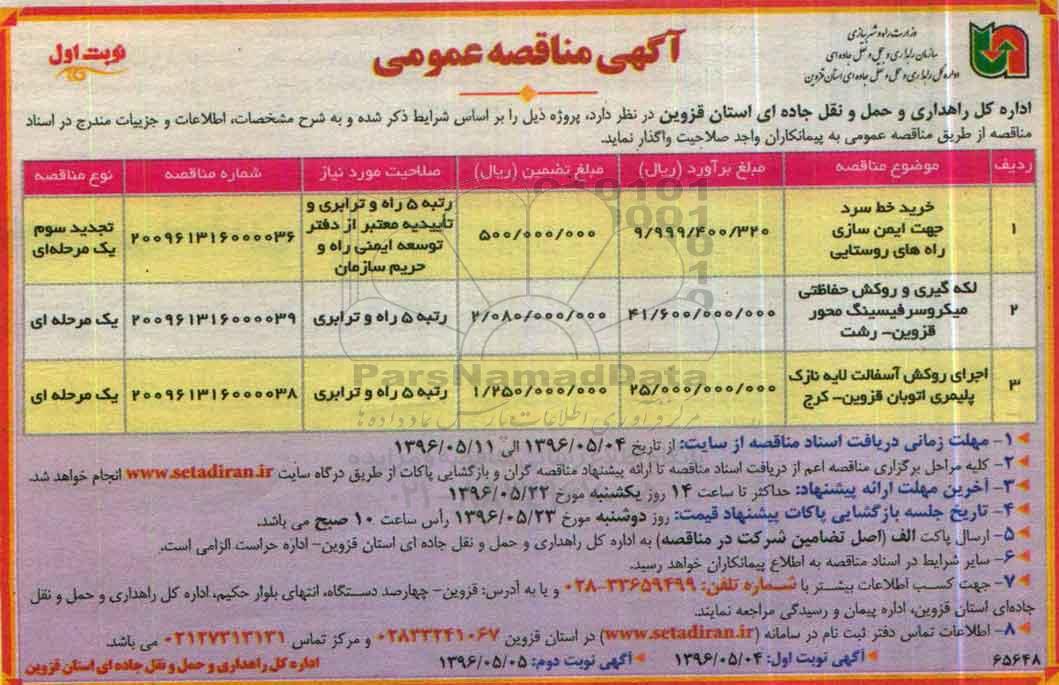 وزارت راه و شهرسازی
سازمان راهداری و حمل و نقل جاده ای
اداره کل راهداری و حمل و نقل جاده ای استان قزوین
آگهی مناقصه عمومی
نوبت اول
اداره کل راهداری و حمل و نقل جاده ای استان قزوین در نظر دارد، پروژه ذیل را بر اساس شرایط ذکر شده و به شرح مشخصات، اطلاعات و جزییات مندرج در اسناد
مناقصه از طریق مناقصه عمومی به پیمانکاران واجد صلاحیت واگذار نماید.
ردیف موضوع مناقصه مبلغ برآورد (ریال) مبلغ تضمین (ریال) صلاحیت مورد نیاز شماره مناقصه نوع مناقصه
۱ خرید خط سرد جهت ایمن سازی راه های روستایی ۹/۹۹۹/۴۰۰/۳۲۰ ۵۰۰/۰۰۰/۰۰۰ رتبه ۵ راه و ترابری و تأییدیه معتبر از دفتر توسعه ایمنی راه و حریم سازمان ۲۰۰۹۶۱۳۱۶۰۰۰۰۳۶ تجدید سوم یک مرحله‌ای
۲ لکه گیری و روکش حفاظتی میکروسرفیسینگ محور قزوین- رشت ۴۱/۶۰۰/۰۰۰/۰۰۰ ۲/۰۸۰/۰۰۰/۰۰۰ رتبه ۵ راه و ترابری ۲۰۰۹۶۱۳۱۶۰۰۰۰۳۹ یک مرحله ای
۳ اجرای روکش آسفالت لایه نازک پلیمری اتوبان قزوین- کرج ۲۵/۰۰۰/۰۰۰/۰۰۰ ۱/۲۵۰/۰۰۰/۰۰۰ رتبه ۵ راه و ترابری ۲۰۰۹۶۱۳۱۶۰۰۰۰۳۸ یک مرحله ای
ParsNamadData
۱- مهلت زمانی دریافت اسناد مناقصه از سایت: از تاریخ ۱۳۹۶/۰۵/۰۴ الی ۱۳۹۶/۰۵/۱۱
۲- کلیه مراحل برگزاری مناقصه اعم از دریافت اسناد مناقصه تا ارائه پیشنهاد مناقصه گران و بازگشایی پاکات از طریق درگاه سایت www.setadiran.ir انجام خواهد شد.
۳- آخرین مهلت ارائه پیشنهاد: حداکثر تا ساعت ۱۴ روز یکشنبه مورخ ۱۳۹۶/۰۵/۲۲
۴- تاریخ جلسه بازگشایی پاکات پیشنهاد قیمت: روز دوشنبه مورخ ۱۳۹۶/۰۵/۲۳ رأس ساعت ۱۰ صبح می باشد.
۵- ارسال پاکت الف (اصل تضامین شرکت در مناقصه) به اداره کل راهداری و حمل و نقل جاده ای استان قزوین- اداره حراست الزامی است.
۶- سایر شرایط در اسناد مناقصه به اطلاع پیمانکاران خواهد رسید.
۷- جهت کسب اطلاعات بیشتر با شماره تلفن: ۳۳۶۵۹۴۹۹-۰۲۸ و یا به آدرس: قزوین- چهارصد دستگاه، انتهای بلوار حکیم، اداره کل راهداری و حمل و نقل
جاده‌ای استان قزوین، اداره پیمان و رسیدگی مراجعه نمایند.
۸- اطلاعات تماس دفتر ثبت نام در سامانه (www.setadiran.ir) در استان قزوین ۰۲۸۳۳۲۴۱۰۶۷ و مرکز تماس ۰۲۱۲۷۳۱۳۱۳۱ می باشد.
۶۵۶۴۸ آگهی نوبت اول: ۱۳۹۶/۰۵/۰۴ آگهی نوبت دوم: ۱۳۹۶/۰۵/۰۵ اداره کل راهداری و حمل و نقل جاده ای استان قزوین